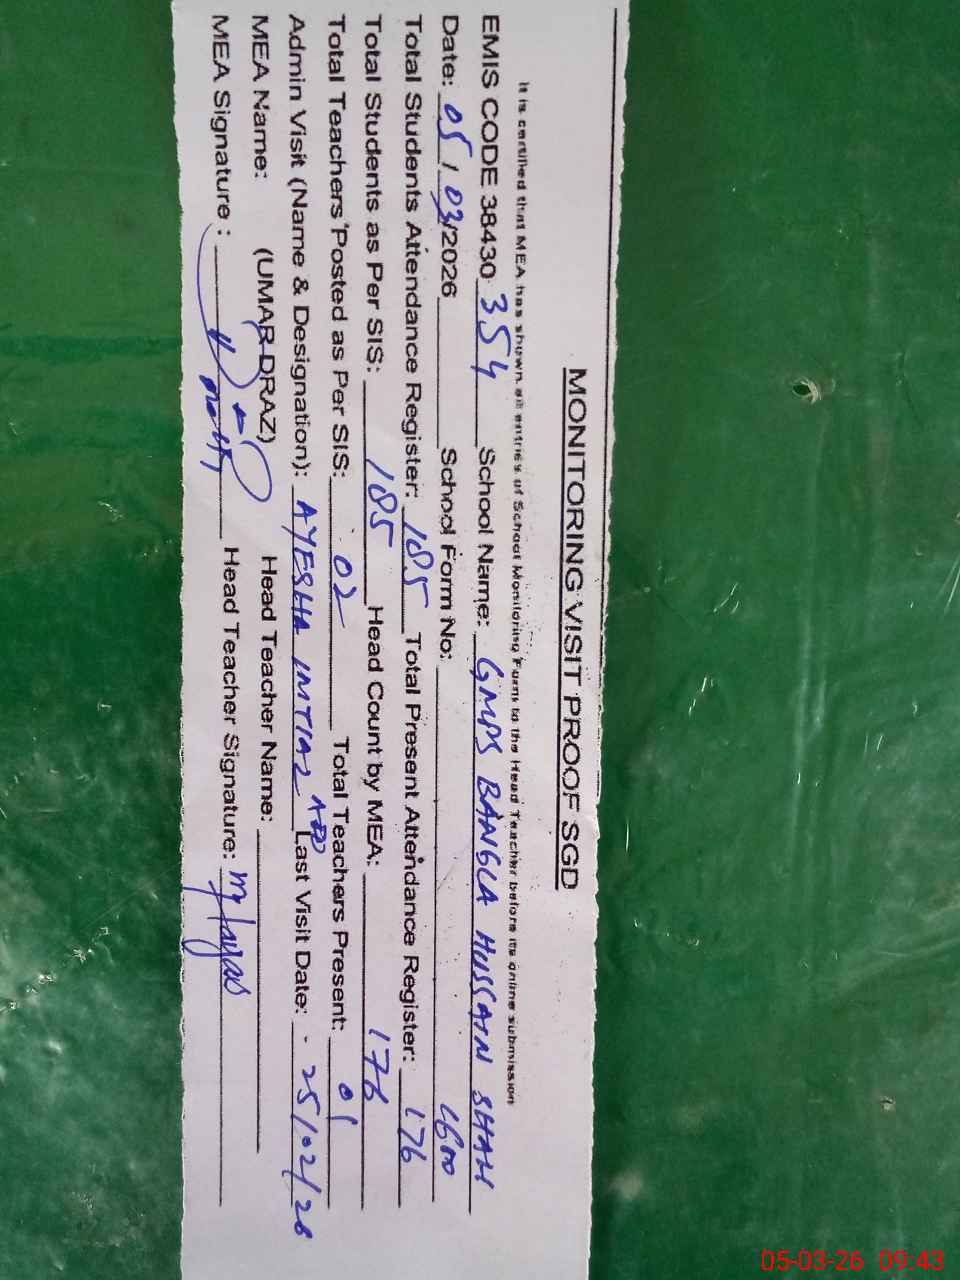 MONITORING VISIT PROOF SGD
It is certified that MEA has shown all entries of School Monitoring Form to the Head Teacher before its online submission
EMIS CODE 38430 354 School Name: GMPS BANGLA HUSSAIN SHAH
Date: 05/03/2026 School Form No: 1600
Total Students Attendance Register: 185 Total Present Attendance Register: 176
Total Students as Per SIS: 185 Head Count by MEA: 176
Total Teachers Posted as Per SIS: 02 Total Teachers Present: 01
Admin Visit (Name & Designation): AYESHA IMTIAZ Last Visit Date: - 25/02/26
MEA Name: (UMAR DRAZ) Head Teacher Name:
MEA Signature : Head Teacher Signature:
05-03-26 09:43